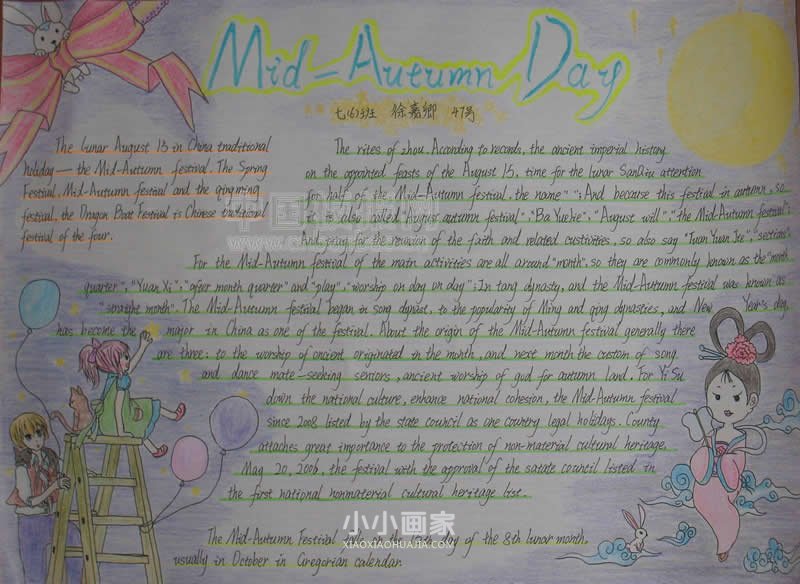 Mid-Autumn Day
七(6)班 徐嘉卿 47号
The lunar August 15 in China traditional
holiday — the Mid-Autumn festival. The Spring
Festival, Mid-Autumn festival and the qingming
festival, the Dragon Boat Festival is Chinese traditional
festival of the four.
The rites of zhou. According to records, the ancient imperial history
on the appointed feasts of the August 15, time for the lunar SanQiu attention
for half of the Mid-Autumn festival, the name" "; And because this festival in autumn, so
it is also called "August autumn festival", "Ba Yue Jie", "August will", "the Mid-Autumn festival";
And pray for the reunion of the faith and related custivities, so also say "Tuan Yuan Jie", "section".
For the Mid-Autumn festival of the main activities are all around "month", so they are commonly known as the "month
quarter", "Yuan Xi"; "after month quarter" and "play", "worship on day on day"; In tang dynasty, and the Mid-Autumn festival was known as
"straight month". The Mid-Autumn festival began in song dynast, to the popularity of Ming and qing dynasties, and New Year's day,
has become the major in China as one of the festival. About the origin of the Mid-Autumn festival generally there
are three: to the worship of ancient originated in the month, and next month the custom of song
and dance mate-seeking seniors, ancient worship of god for autumn land. For Yi Su
down the national culture, enhance national cohesion, the Mid-Autumn festival
since 2008 listed by the state council as one country legal holidays. County
attaches great importance to the protection of non-material cultural heritage,
May 20, 2006, the festival with the approval of the satate council listed in
the first national nonmaterial cultural heritage list.
小小画家
XIAOXIAOHUAJIA.COM
The Mid-Autumn Festival falls on the 15th day of the 8th lunar month,
usually in October in Gregorian calendar.